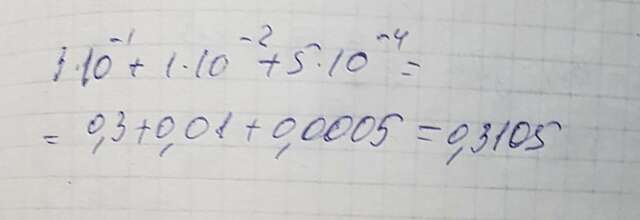 3·10⁻¹ + 1·10⁻² + 5·10⁻⁴ =
= 0,3 + 0,01 + 0,0005 = 0,3105